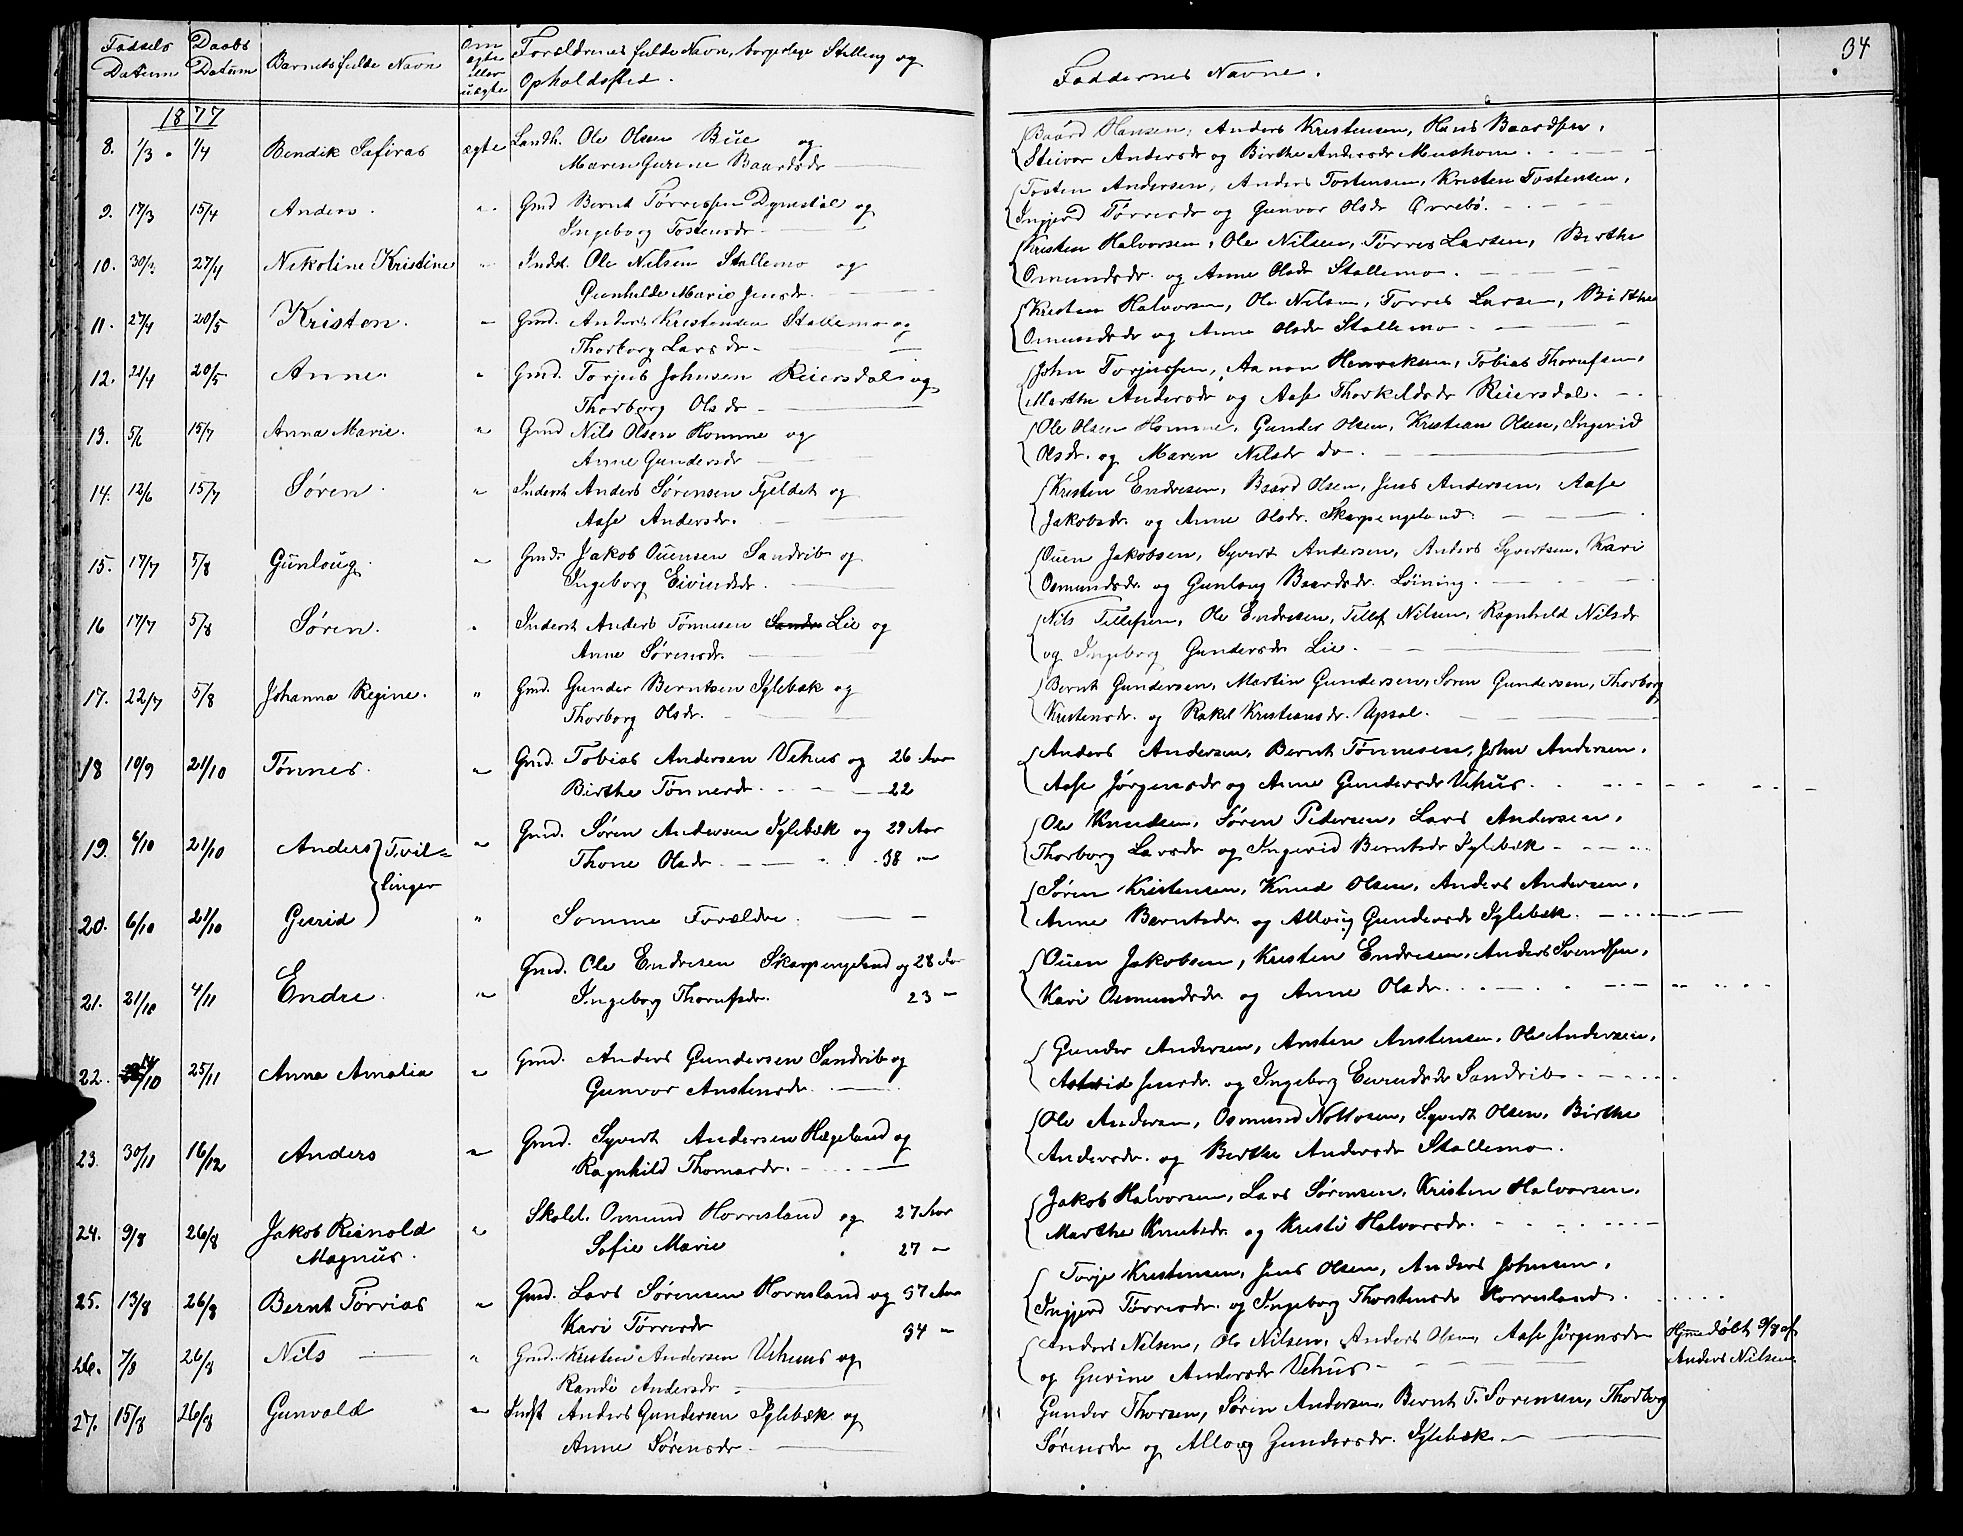 34
Fødsels Datum
Daabs Datum
Barnets fulde Navn
Om ægte eller uægte
Forældrenes fulde Navn, borgerlige Stilling og
Opholdssted.
Faddernes Navne.
1877
8. 1/3 1/4 Bendik Safiras ægte Landh. Ole Olsen Bue og
Maren Gurine Baardsdr
Baard Hansen, Anders Kristensen, Hans Baardsen,
Andersdr og Birthe Andersdr
9. 17/3 15/4 Anders. " Gmd Bernt Tørressen Dynestøl og
Ingeborg Tostensdr
Tosten Andersen, Anders Tostensen, Kristen Tostensen,
Ingjerd Tørresdr og Gunvor Olsdr Orrebø.
10. 30/3 27/4 Nikoline Kristine " Inds. Ole Nilsen Stallemo og
Gunhilde Marie Jensdr.
Kristen Halvorsen, Ole Nilsen, Tørres Larsen, Birthe
Omundsdr. og Anne Olsdr Stallemo.
11. 27/4 20/5 Kristen. " Gmd. Anders Kristensen Stallemo og
Thorborg Larsdr
Kristen Halvorsen, Ole Nilsen, Tørres Larsen, Birthe
Omundsdr og Anne Olsdr Stallemo
12. 22/4 20/5 Anne. " Gmd. Torjus Johnsen Reiersdal og
Thorborg Olsdr
John Torjussen, Aanon Henreksen, Tobias Thorufsen,
Marthe Andersdr og Aase Thorkildsdr Reiersdal.
13. 5/6 15/7 Anna Marie. " Gmd Nils Olsen Homme og
Anne Gundersdr
Ole Olsen Homme, Gunder Olsen, Kristian Olsen, Ingerid
Olsdr. og Maren Nilsdr do.
14. 12/6 15/7 Søren. " Inderst Anders Sørensen Fjeldet og
Aase Andersdr.
Kristen Endresen, Baard Olsen, Jens Andersen, Aase
Jakobsdr. og Anne Olsdr. Skarpengeland
15. 17/7 5/8 Gunloug. " Gmd. Jakob Ouensen Sandrib og
Ingeborg Eivindsdr.
Ouen Jakobsen, Syvert Andersen, Anders Syvertsen, Kari
Osmundsdr. og Gunloug Baardsdr. Løining.
16 17/7 5/8 Søren. " Inderst Anders Tønnesen Lie og
Anne Sørensdr.
Nils Tellefsen, Ole Endresen, Tellef Nilsen, Ragnhild Nilsdr
og Ingeborg Gundersdr Lie.
17. 22/7 5/8 Johanna Regine. " Gmd. Gunder Berntsen Iglebæk og
Thorborg Olsdr.
Bernt Gundersen, Martin Gundersen, Søren Gundersen, Thorborg
Kristensdr. og Rakel Kristiansdr. Upsal.
18 10/9 21/10 Tønnes. " Gmd. Tobias Andersen Vehus og 26 Aar
Birthe Tønnesdr. 22
Anders Andersen, Bernt Tønnesen, John Andersen,
Aase Jørgensdr og Anne Gundersdr Vehus.
19. 6/10 21/10 Anders Tvil- " Gmd. Søren Andersen Iglebæk og 29 Aar
Thone Olsdr. 38 "
linger
Ole Knudsen, Søren Pedersen, Lars Andersen,
Thorborg Larsdr og Ingerid Berntsdr Iglebæk
20. 6/10 21/10 Gurid " Somme Forældre.
Søren Kristensen, Knud Olsen, Anders Andersen,
Anne Berntsdr. og Alloug Gundersdr Iglebæk.
21. 21/10 4/11 Endre. " Gmd. Ole Endresen Skarpengeland og 28 Aar
Ingeborg Thorufsdr. 23 "
Ouen Jakobsen, Kristen Endresen, Anders Svendsen,
Kari Osmundsdr. og Anne Olsdr.
22. 25/11 Anna Amalia " Gmd. Anders Gundersen Sandrib og
Gunvor Anstensdr
Gunder Andersen, Ansten Anstensen, Ole Andersen,
Astrid Jensdr. og Ingeborg Eivindsdr Sandrib
23. 30/11 16/12 Anders " Gmd. Syvert Andersen Hægeland og
Ragnhild Thomasdr.
Ole Andersen, Osmund Nottosen, Syvert Olsen, Birthe
Andersdr. og Berthe Andersdr Stallemo.
24. 9/8 26/8 Jakob Reinold " Skolel. Omund Horresland og 27 Aar
Magnus. Sofie Marie 27 "
Jakob Halvorsen, Lars Sørensen, Kristen Halvorsen,
Marthe Knutsdr. og Kristi Halvorsdr.
25. 13/8 26/8 Bernt Tørrias " Gmd. Lars Sørensen Horresland og 37 Aar
Kari Tørresdr 34 "
Torje Kristensen, Jens Olsen, Anders Johnsen,
Ingjerd Tørresdr. og Ingeborg Thorstensdr Horresland.
26. 7/8 26/8 Nils " Gmd. Kristen Andersen Vehuus og
Randi Andersdr
Anders Nilsen, Ole Nilsen, Anders Olsen, Aase Jørgensdr
og Gurine Andersdr Vehus
Hjmedøbt 9/8 af
Anders Nilsen.
27. 15/8 26/8 Gunvald " Indst Anders Gundersen Iglebæk og
Anne Sørensdr
Gunder Thorsen, Søren Andersen, Bernt T. Sørensen, Thorborg
Sørensdr og Alloug Gundersdr. Iglebæk